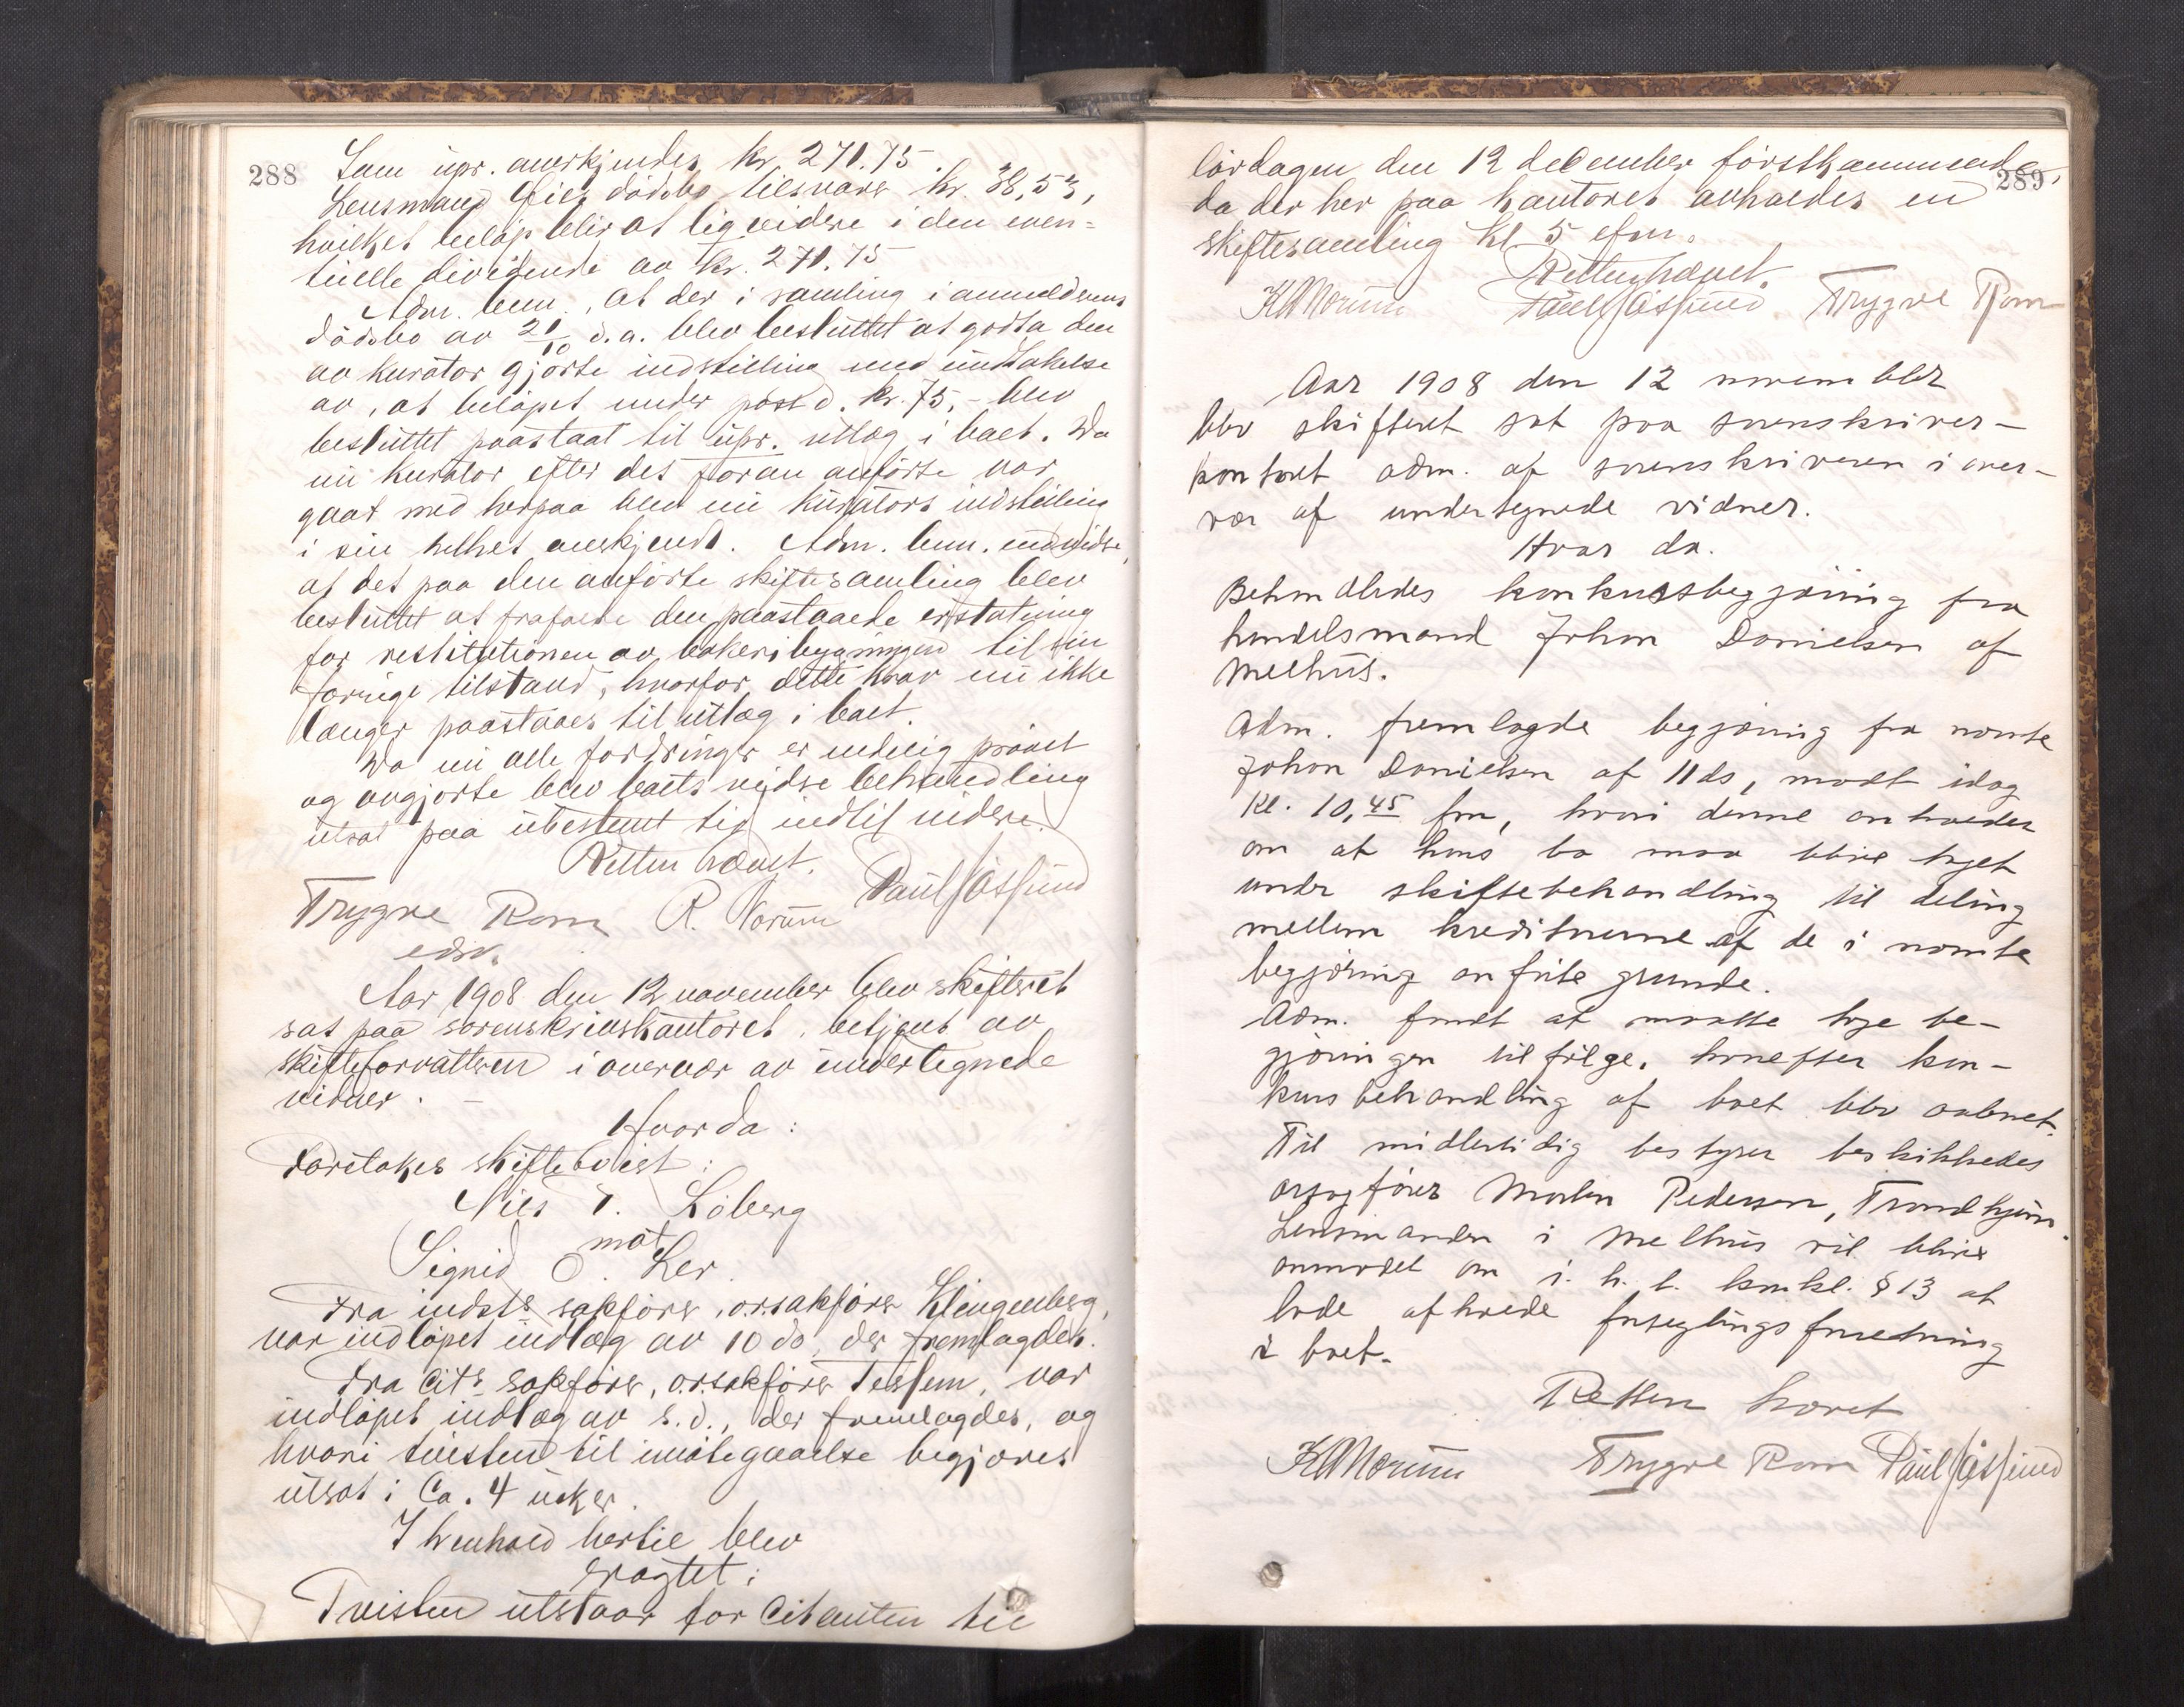 288
Som upr. anerkjendes kr. 270.75.
Lensmand Gies dødsbo tilsvarer kr. 38,53,
hvilket beløp blir at liqvidere i den even=
tuelle dividende av kr. 270.75
Adm. bem., at der i samling i anmelderens
dødsbo av 20/10 d.a. blev besluttet at godta den
av kurator gjorte indstilling med undtakelse
av, at beløpet under post d. kr. 75,- blev
besluttet paastaat til upr. utlæg i boet. Da
nu kurator efter det foran anførte var
gaat med herpaa blev nu kurators indstilling
i sin helhet anerkjendt. Adm. bem. endvidere,
at det paa den anførte skiftesamling blev
besluttet at frafalde den paastaaede erstatning
for restitutionen av bakeribygningen til sin
forrige tilstand, hvorfor dette krav nu ikke
længer paastaaes til utlæg i boet.
Da nu alle fordringer er endelig prøvet
og avgjorte blev boets videre behandling
utsat paa ubestemt tid indtil videre.
Retten hævet.
Trygve Rom R. Norum Paul Aasund
edsv.
Aar 1908 den 12 november blev skifteret
sat paa sorenskriverkontoret, betjent av
skifteforvalteren i overvær av undertegnede
vidner.
Hvorda:
Foretokes skiftetvist:
Nils T. Løberg
mot
Sigrid O. Ler.
Fra indsts sakfører, o.r.sakfører Klingenberg,
var indløpet indlæg av 10 ds, der fremlagdes.
Fra Cits sakfører, o.r.sakfører Tessem, var
indløpet indlæg av s.d., der fremlagdes, og
hvori tvisten til imøtegaaelse begjæres
utsat i Ca. 4 uker.
I henhold hertil blev
eragtet:
Tvisten utstaar for Citanten til
289
lørdagen den 12 december førstkommende,
da der her paa kontoret avholdes en
skiftesamling kl. 5 efm.
Retten hævet.
KANorum Paul Aasund Trygve Rom
Aar 1908 den 12 november
blev skifteret sat paa sorenskriver-
kontoret adm. af sorenskriveren i over-
vær af undertegnede vidner.
Hvor da.
Behandledes konkursbegjæring fra
handelsmand Johan Danielsen af
Melhus.
Adm. fremlagde begjæring fra nævnte
Johan Danielsen af 11 ds, modt idag
Kl. 10,45 fm, hvori denne anholder
om at hans bo maa blive taget
under skiftebehandling til deling
mellem kreditorerne af de i nævnte
begjæring anførte grunde.
Adm. fandt at maatte tage be-
gjæringen til følge, hvorefter kon-
kursbehandling af boet blev aabnet.
Til midlertidig bestyrer beskikkedes
orsagfører Morten Pedersen, Trondhjem.
Lensmanden i Melhus vil blive
anmodet om i. h. t. konkl. § 13 at
lade afholde forseglingsforretning
i boet.
Retten hævet
KANorum Trygve Rom Paul Aasund